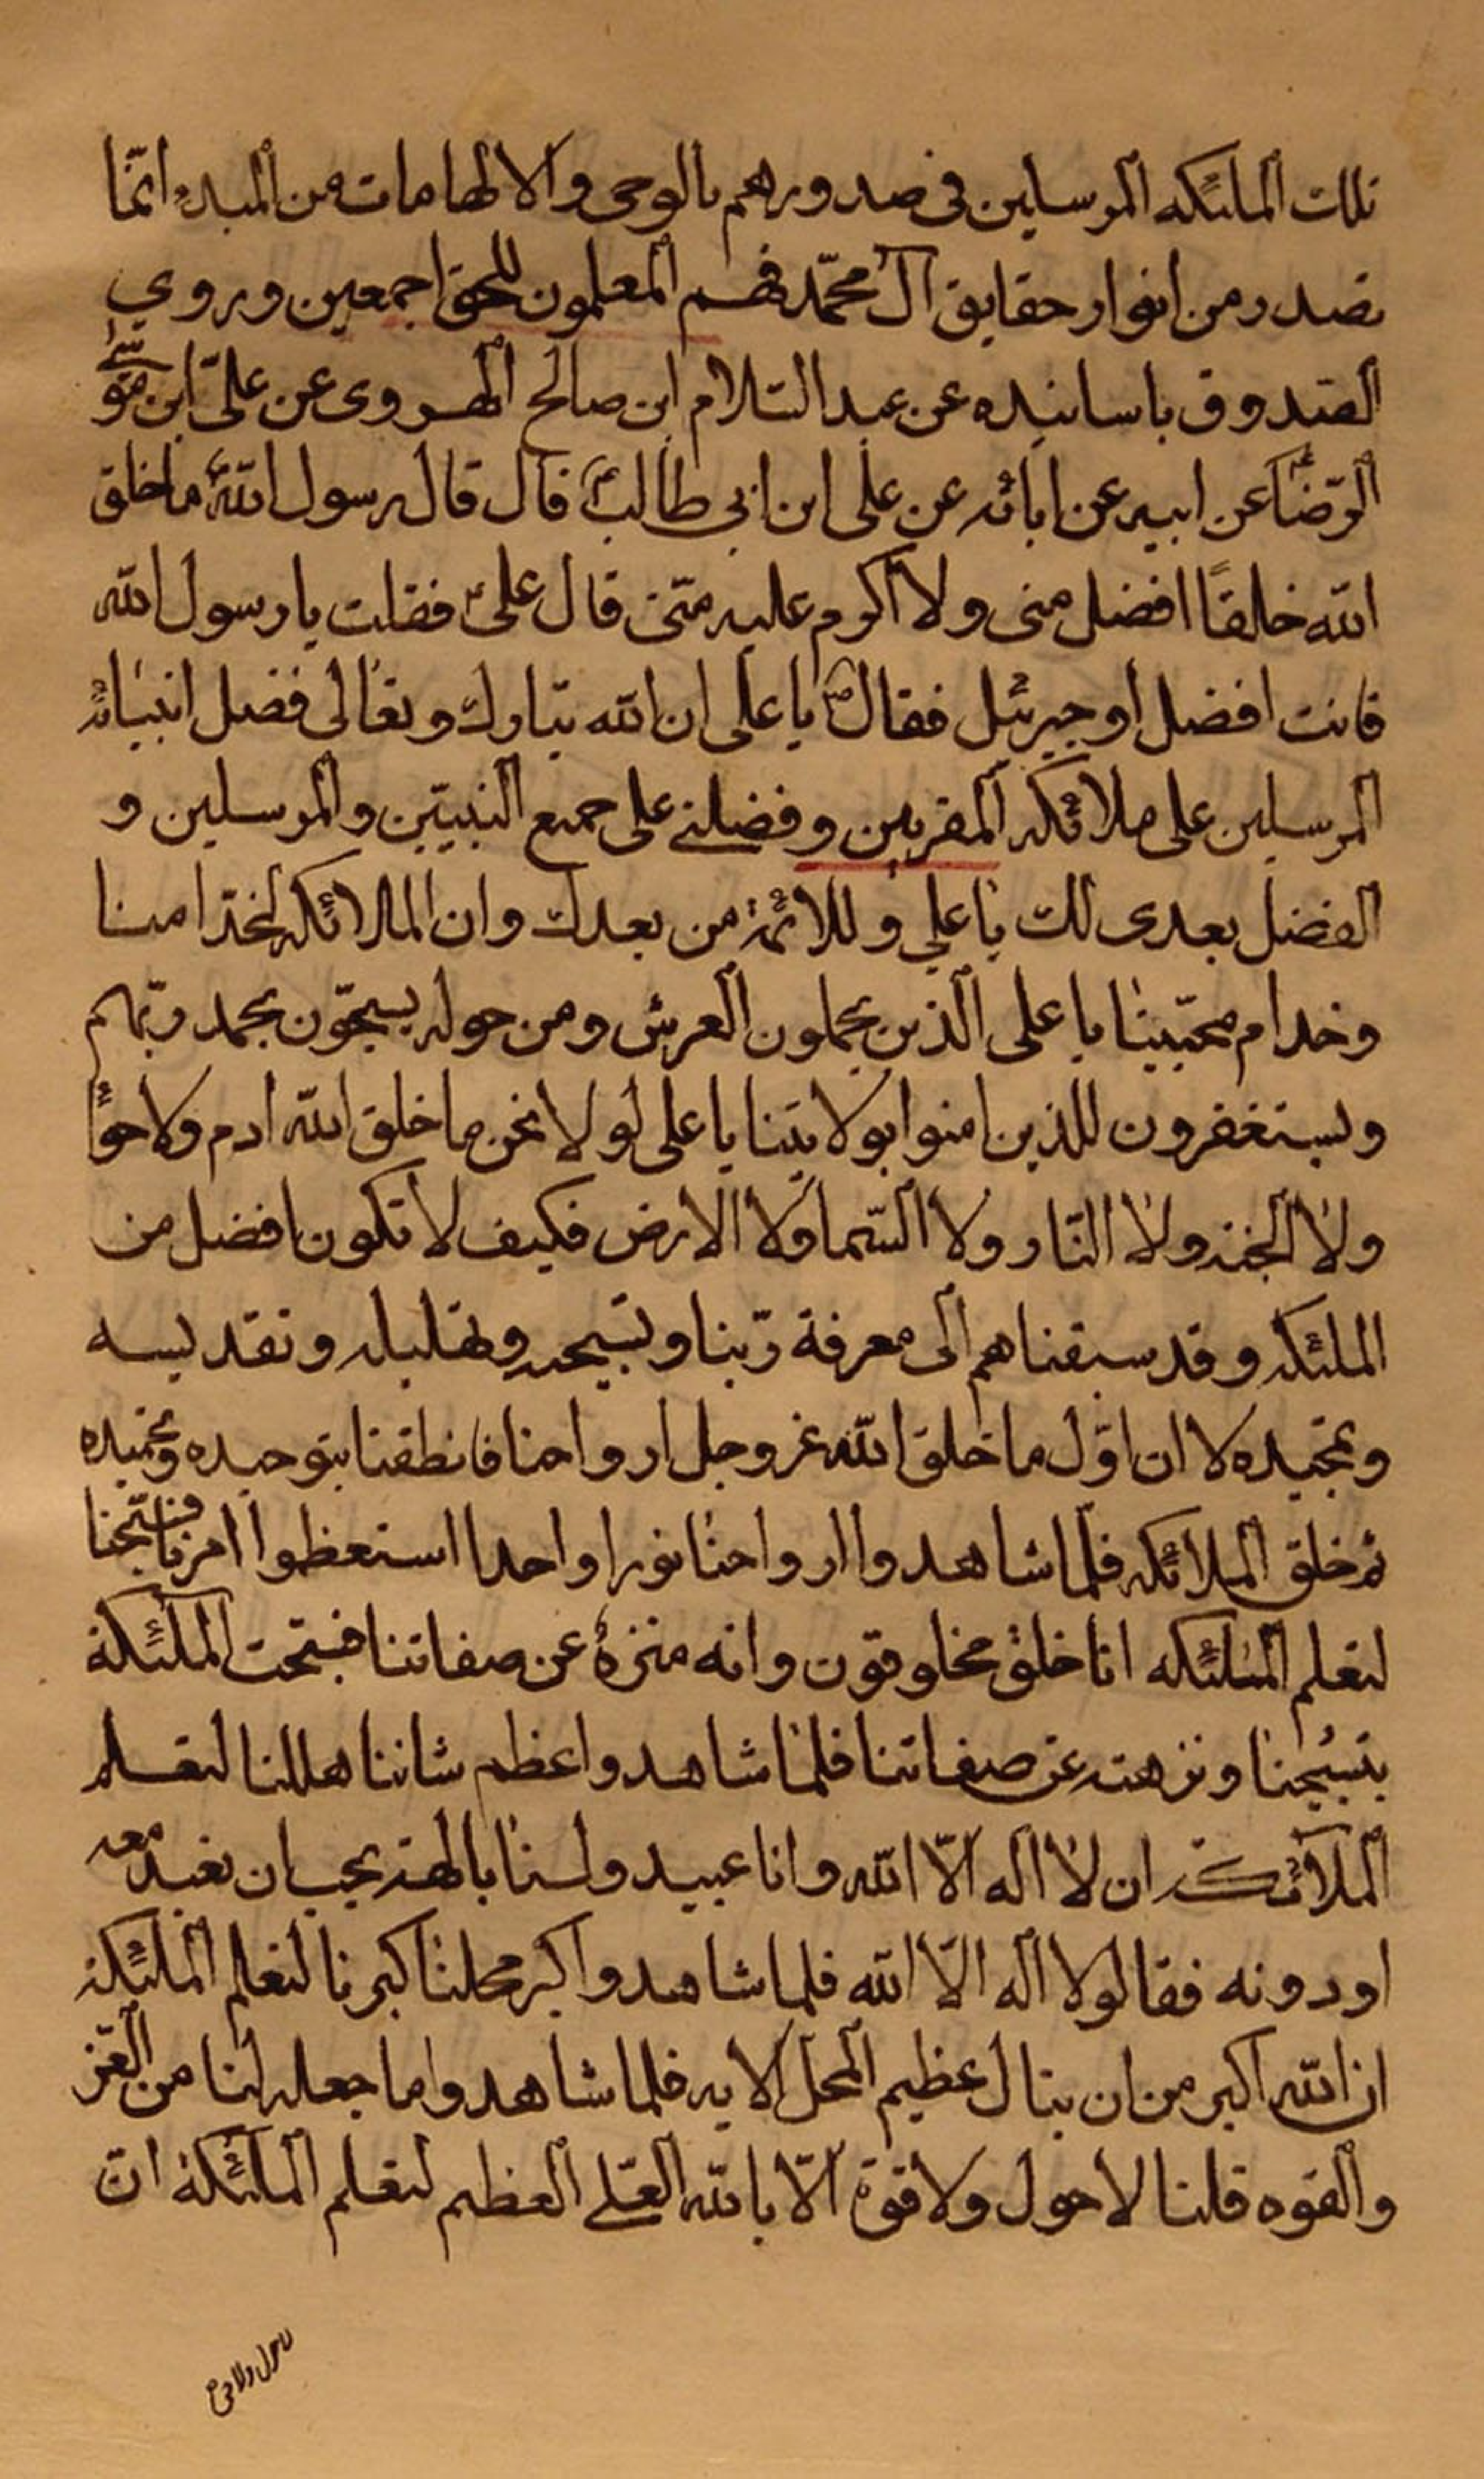 تلك الملئكه المرسلين فى صدورهم بالوحى والالهامات من المبدء انّما
تصدر من انوار حقايق آل محمّد فهم المعلمون للحق اجمعين وروي
الصّدوق باسانيده عن عبد السّلام ابن صالح الهروى عن علىّ ابن موسى
الرّضا عن ابيه عن ابائه عن على ابن ابى طالب قال قال رسول اللّه ما خلق
اللّه خلقًا افضل منى ولا اكرم عليه منّى قال علىّ فقلت يا رسول اللّه
فانت افضل او جبرئيل فقال يا على ان اللّه تبارك وتعالى فضل انبيائه
المرسلين على ملائكه المقربين وفضلنے على جميع النبيّين والمرسلين و
الفضل بعدى لك يا علي وللائمّة من بعدك وان الملائكه لخدّامنا
وخدام محبّينا يا على الّذين يحملون العرش ومن حوله يسبحّون بحمد ربّهم
ويستغفرون للذين امنوا بولايتنا يا على لو لا نحن ما خلق اللّه ادم ولا حوّا
ولا الجنه ولا النّار ولا السّما ولا الارض فكيف لا نكون افضل من
الملئكه وقد سبقناهم الى معرفة ربّنا وتسبيحه وتهليله وتقديسه
وتمجيده لا ان اوّل ما خلق اللّه عز وجل ارواحنا فانطقنا بتوحيده وتحميده
ثم خلق الملائكه فلمّا شاهدوا ارواحنا نورا واحدا استعظموا امرنا فسبّحنا
لتعلم الملئكه انا خلق مخلوقون وانه منزه عن صفاتنا فسبّحت الملئكة
بتسبيحنا ونزهته عن صفاتنا فلما شاهدوا عظم شاننا هللنا لتعلم
الملائكة ان لا اله الّا اللّه وانا عبيد ولسنا بالهة يجب ان نعبد معه
او دونه فقالو لا اله الّا اللّه فلما شاهدوا كبر محلنا كبرنا لتعلم الملئكة
ان اللّه اكبر من ان ينال عظيم المحل الا به فلما شاهدوا ما جعله لنا من العّز
والقوه قلنا لا حول ولا قوّة الّا باللّه العلے العظيم لتعلم الملئكة ان
لا حول ولا قوة